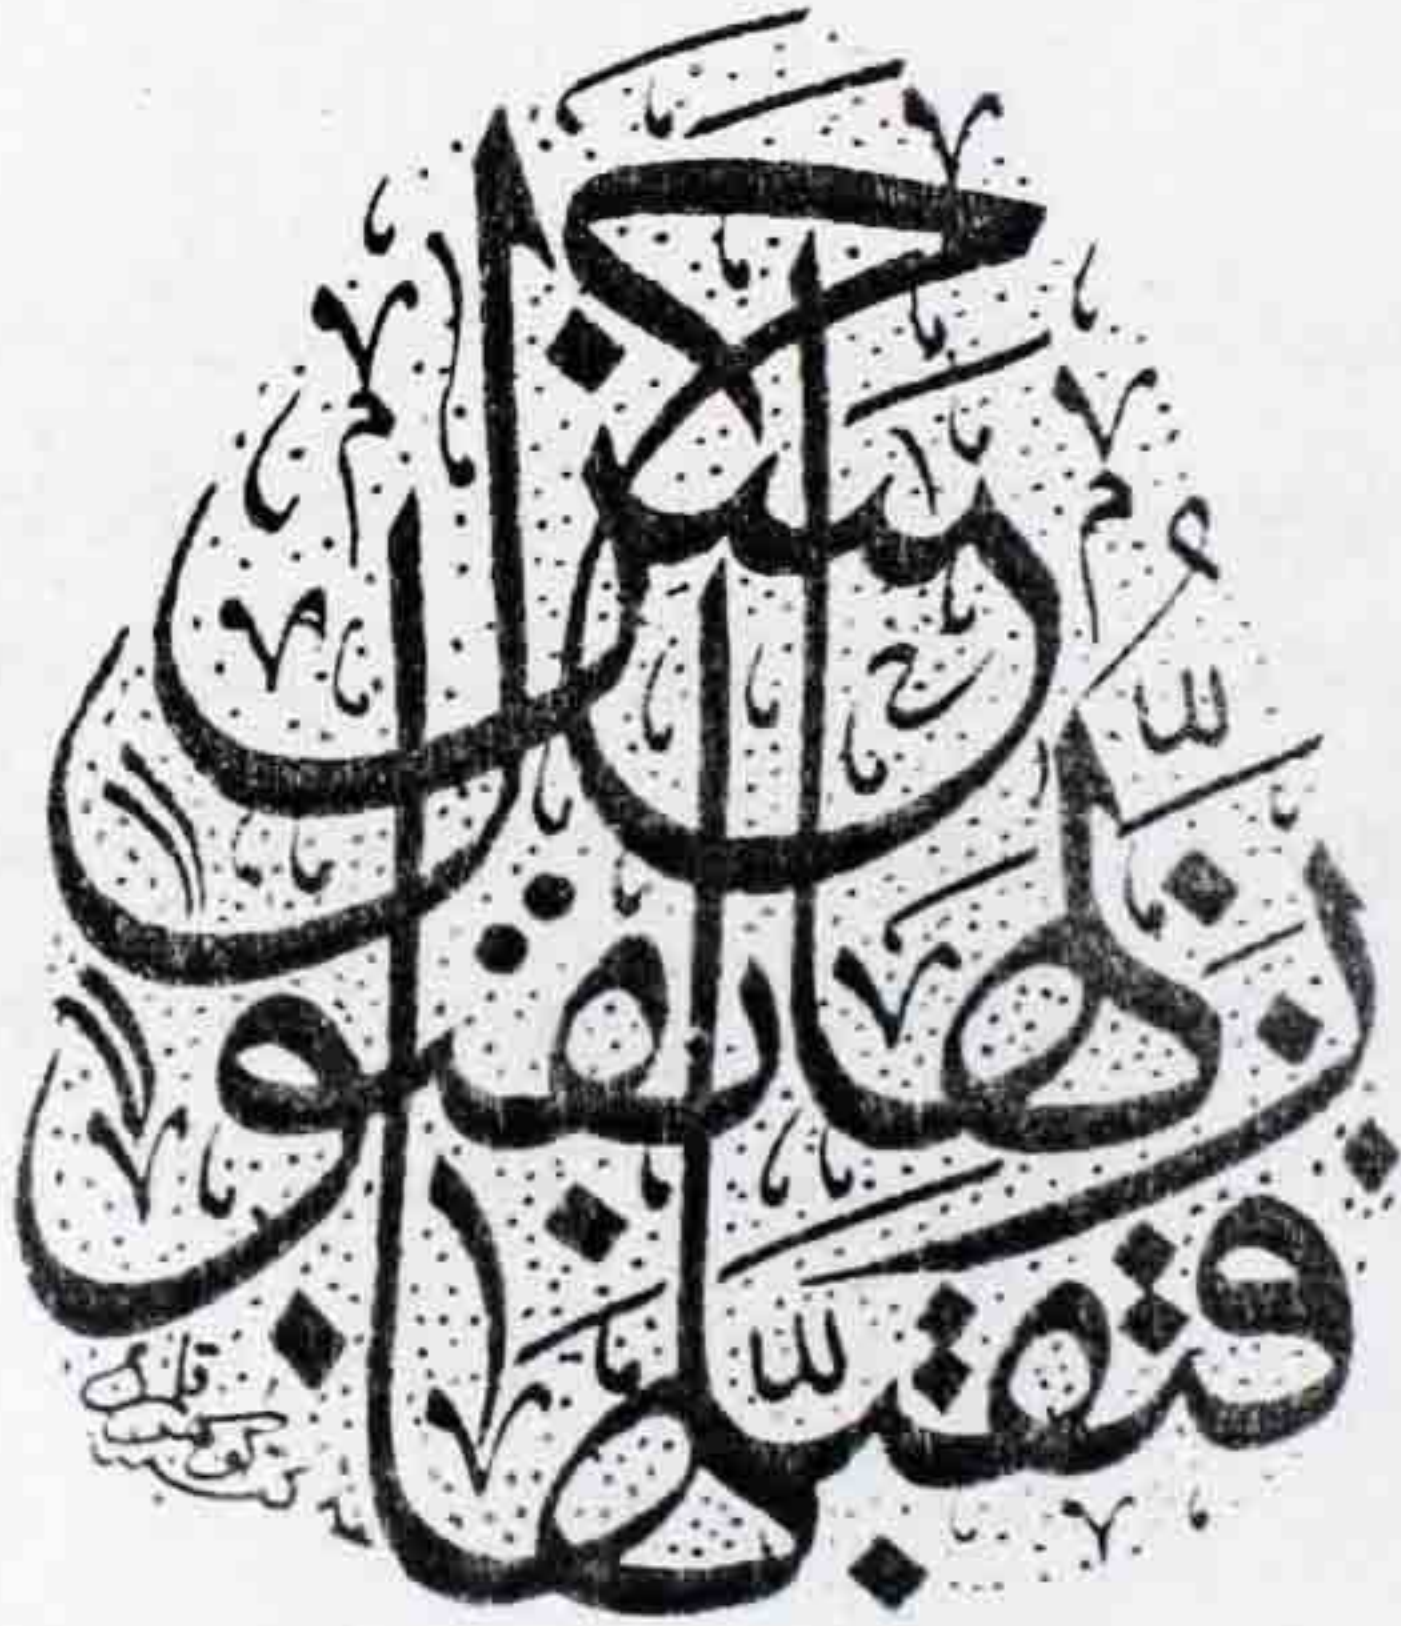 فتقبلها ربها بقبول حسن